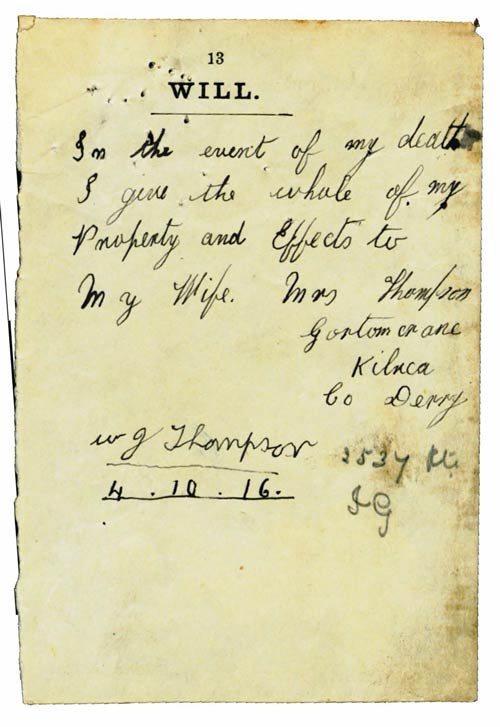 13
WILL.
In the event of my death
I give the whole of my
Property and Effects to
My Wife. Mrs Thompson
Gortomcrane
Kilrea
Co Derry
W J Thompson
4.10.16.
2537 Pte.
IG